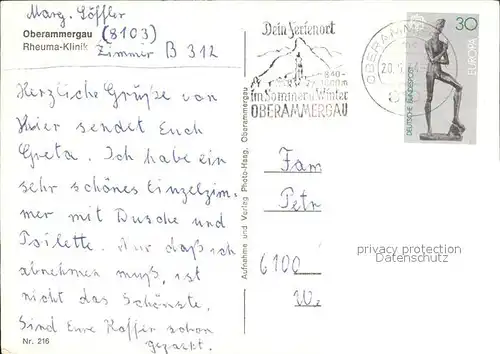 Marg. Löffler
Oberammergau (8103)
Rheuma-Klinik Zimmer B 312
Herzliche Grüße von
Hier sendet Euch
Greta. Ich habe ein
sehr schönes Einzelzim.
mer mit Dusche und
Toilette. Nur daß ich
abnehmen muß, ist
nicht das Schönste.
Sind Eure Koffer schon
gepackt.
Nr. 216
Aufnahme und Verlag Photo-Haag, Oberammergau
Dein Ferienort
840-
im Sommer u. Winter
OBERAMMERGAU
OBERAMME
20.
30
EUROPA
DEUTSCHE BUNDESPOST
Fam
Petr
6100
We
privacy protection
Datenschutz